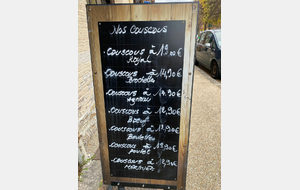 Nos Couscous
Couscous à 19,00 €
Royal
Couscous à 14,90 €
Brochette
Couscous à 14,90 €
Agneau
Couscous à 12,90 €
Boeuf
Couscous à 13,90 €
Boulettes
Couscous à 13,90 €
Poulet
Couscous à 13,90 €
Merguez